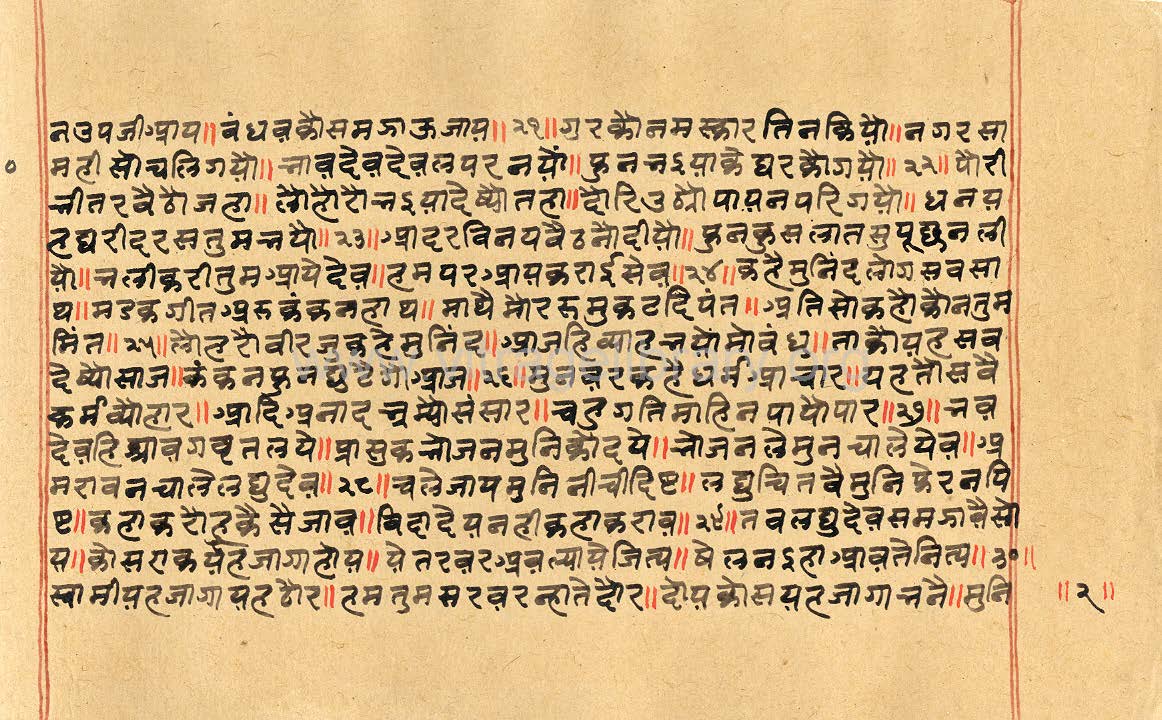 नउपजीआय॥ बंधवकौसमजाऊजाय॥२१॥ गुरकौनमस्कारतिनकियौ॥ नगरसा
महीसोचलिगयौ॥ भावदेवदेवलपरनयौं॥ फुनभइयाकेघरकौगयौ॥२२॥ पौरी
भीतरवैठौजहा॥ लौहौरौभइयादेष्यौतहा॥ दौरिउठ्यौपायनपरिगयौ॥ धनय
हघरीदरसतुमभयौ॥२३॥ आदरविनयवैठनौदीयौ॥ फुनकुसलातसुपूछनली
यौ॥ भलीकरीतुमआयेदेव॥ हमपरआयकराईसेव॥२४॥ कहैमुनिंदलोगसवसा
थ॥ मडकगीतअरुकंकनहाथ॥ माथैमोरसमुकटदिपंत॥ अतिसोकहौकौनतुम
मिंत॥२५॥ लौहरौवीरजवकहैमुनिंद॥ आजहिव्याहभयोमोवंध॥ ताकौयहसव
देष्यौसाज॥ कंकनफुनघुटंगीआज॥२६॥ मुनवरकहैधर्मआचार॥ यहतौसवै
कर्मव्यौहार॥ आदिअनादभ्रम्यौसंसार॥ चहुगतिमाहिनपायौपार॥२७॥ भव
देवहिश्रावगवृतलये॥ प्रासुकभोजनमुनिकोदये॥ भोजनलैमुनचालेयेव॥ अ
मरावनचालैलघुदेव॥२८॥ चलेजायमुनिनीचीदिष्ट॥ लघुचितवैमुनिफेरनपि
ष्ट॥ कहाकरौहकैसैजाव॥ विदादेयनहीकहाकराव॥२९॥ तवलघुदेवसमजावैसो
य॥ कौसराकर्यहजागाहोय॥ येतरवरअवल्यायैजित्य॥ षेलनइहाआवतेनित्य॥३०॥
स्वामीयहजागायहठौर॥ हमतुमसरवरन्हातेदौर॥ दोयकोसयहजागाभनै॥ मुनि
॥२॥
www.vitragelibrary.org